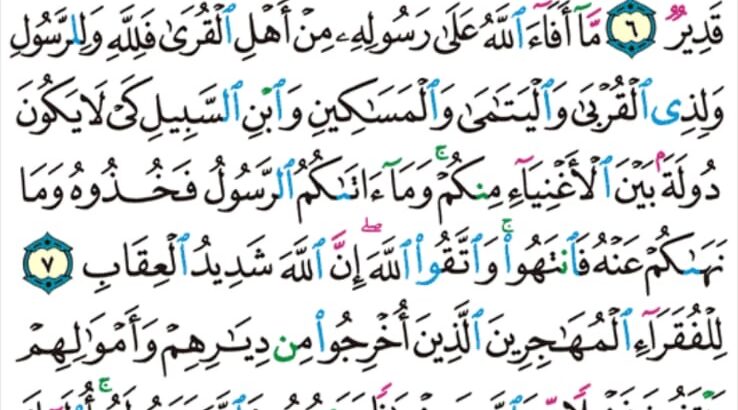 قَدِيرٌ ٦ مَّآ أَفَآءَ ٱللَّهُ عَلَىٰ رَسُولِهِۦ مِنْ أَهْلِ ٱلْقُرَىٰ فَلِلَّهِ وَلِلرَّسُولِ
وَلِذِى ٱلْقُرْبَىٰ وَٱلْيَتَـٰمَىٰ وَٱلْمَسَـٰكِينِ وَٱبْنِ ٱلسَّبِيلِ كَىْ لَا يَكُونَ
دُولَةَۢ بَيْنَ ٱلْأَغْنِيَآءِ مِنكُمْ ۚ وَمَآ ءَاتَىٰكُمُ ٱلرَّسُولُ فَخُذُوهُ وَمَا
نَهَىٰكُمْ عَنْهُ فَٱنتَهُوا۟ ۚ وَٱتَّقُوا۟ ٱللَّهَ ۖ إِنَّ ٱللَّهَ شَدِيدُ ٱلْعِقَابِ ٧
لِلْفُقَرَآءِ ٱلْمُهَـٰجِرِينَ ٱلَّذِينَ أُخْرِجُوا۟ مِن دِيَـٰرِهِمْ وَأَمْوَٰلِهِمْ